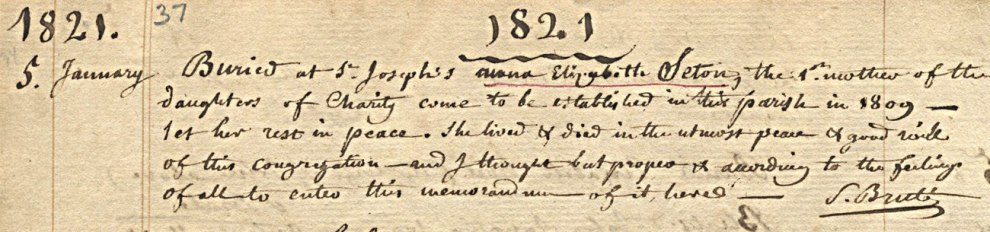 1821. 37 1821
5. January Buried at St Joseph's anna Elizabeth Seton, the 1st mother of the
daughters of Charity come to be established in this parish in 1809 —
let her rest in peace. She lived & died in the utmost peace & good
of this congregation — and I thought but proper & according to the feelings
of all to enter this memorandum of it, here — S. Bruté
3